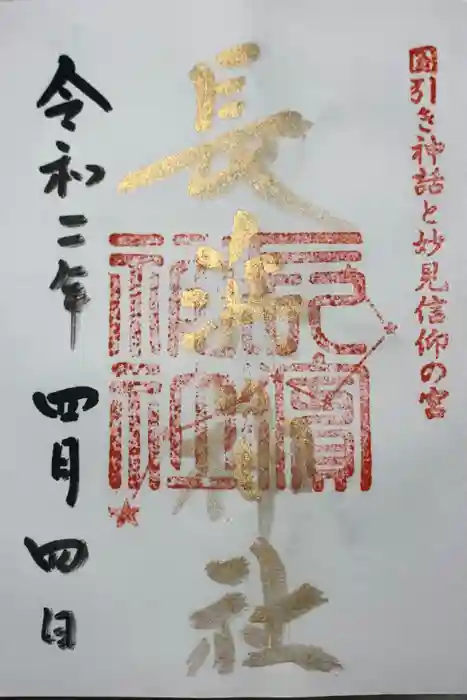 國引き神話と妙見信仰の宮
長浜神社
長濱
神社
令和二年四月四日